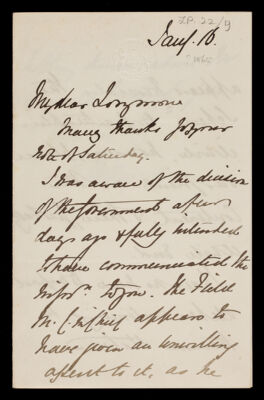 L.P. 22/9
Jany. 16.
? 1865
My dear Longmore
Many thanks for your
note of Saturday.
I was aware of the decision
of the Government a few
days ago & fully intended
to have communicated the
inform to you. The Field
M. C in Chief appears to
have given an unwilling
assent to it, as he